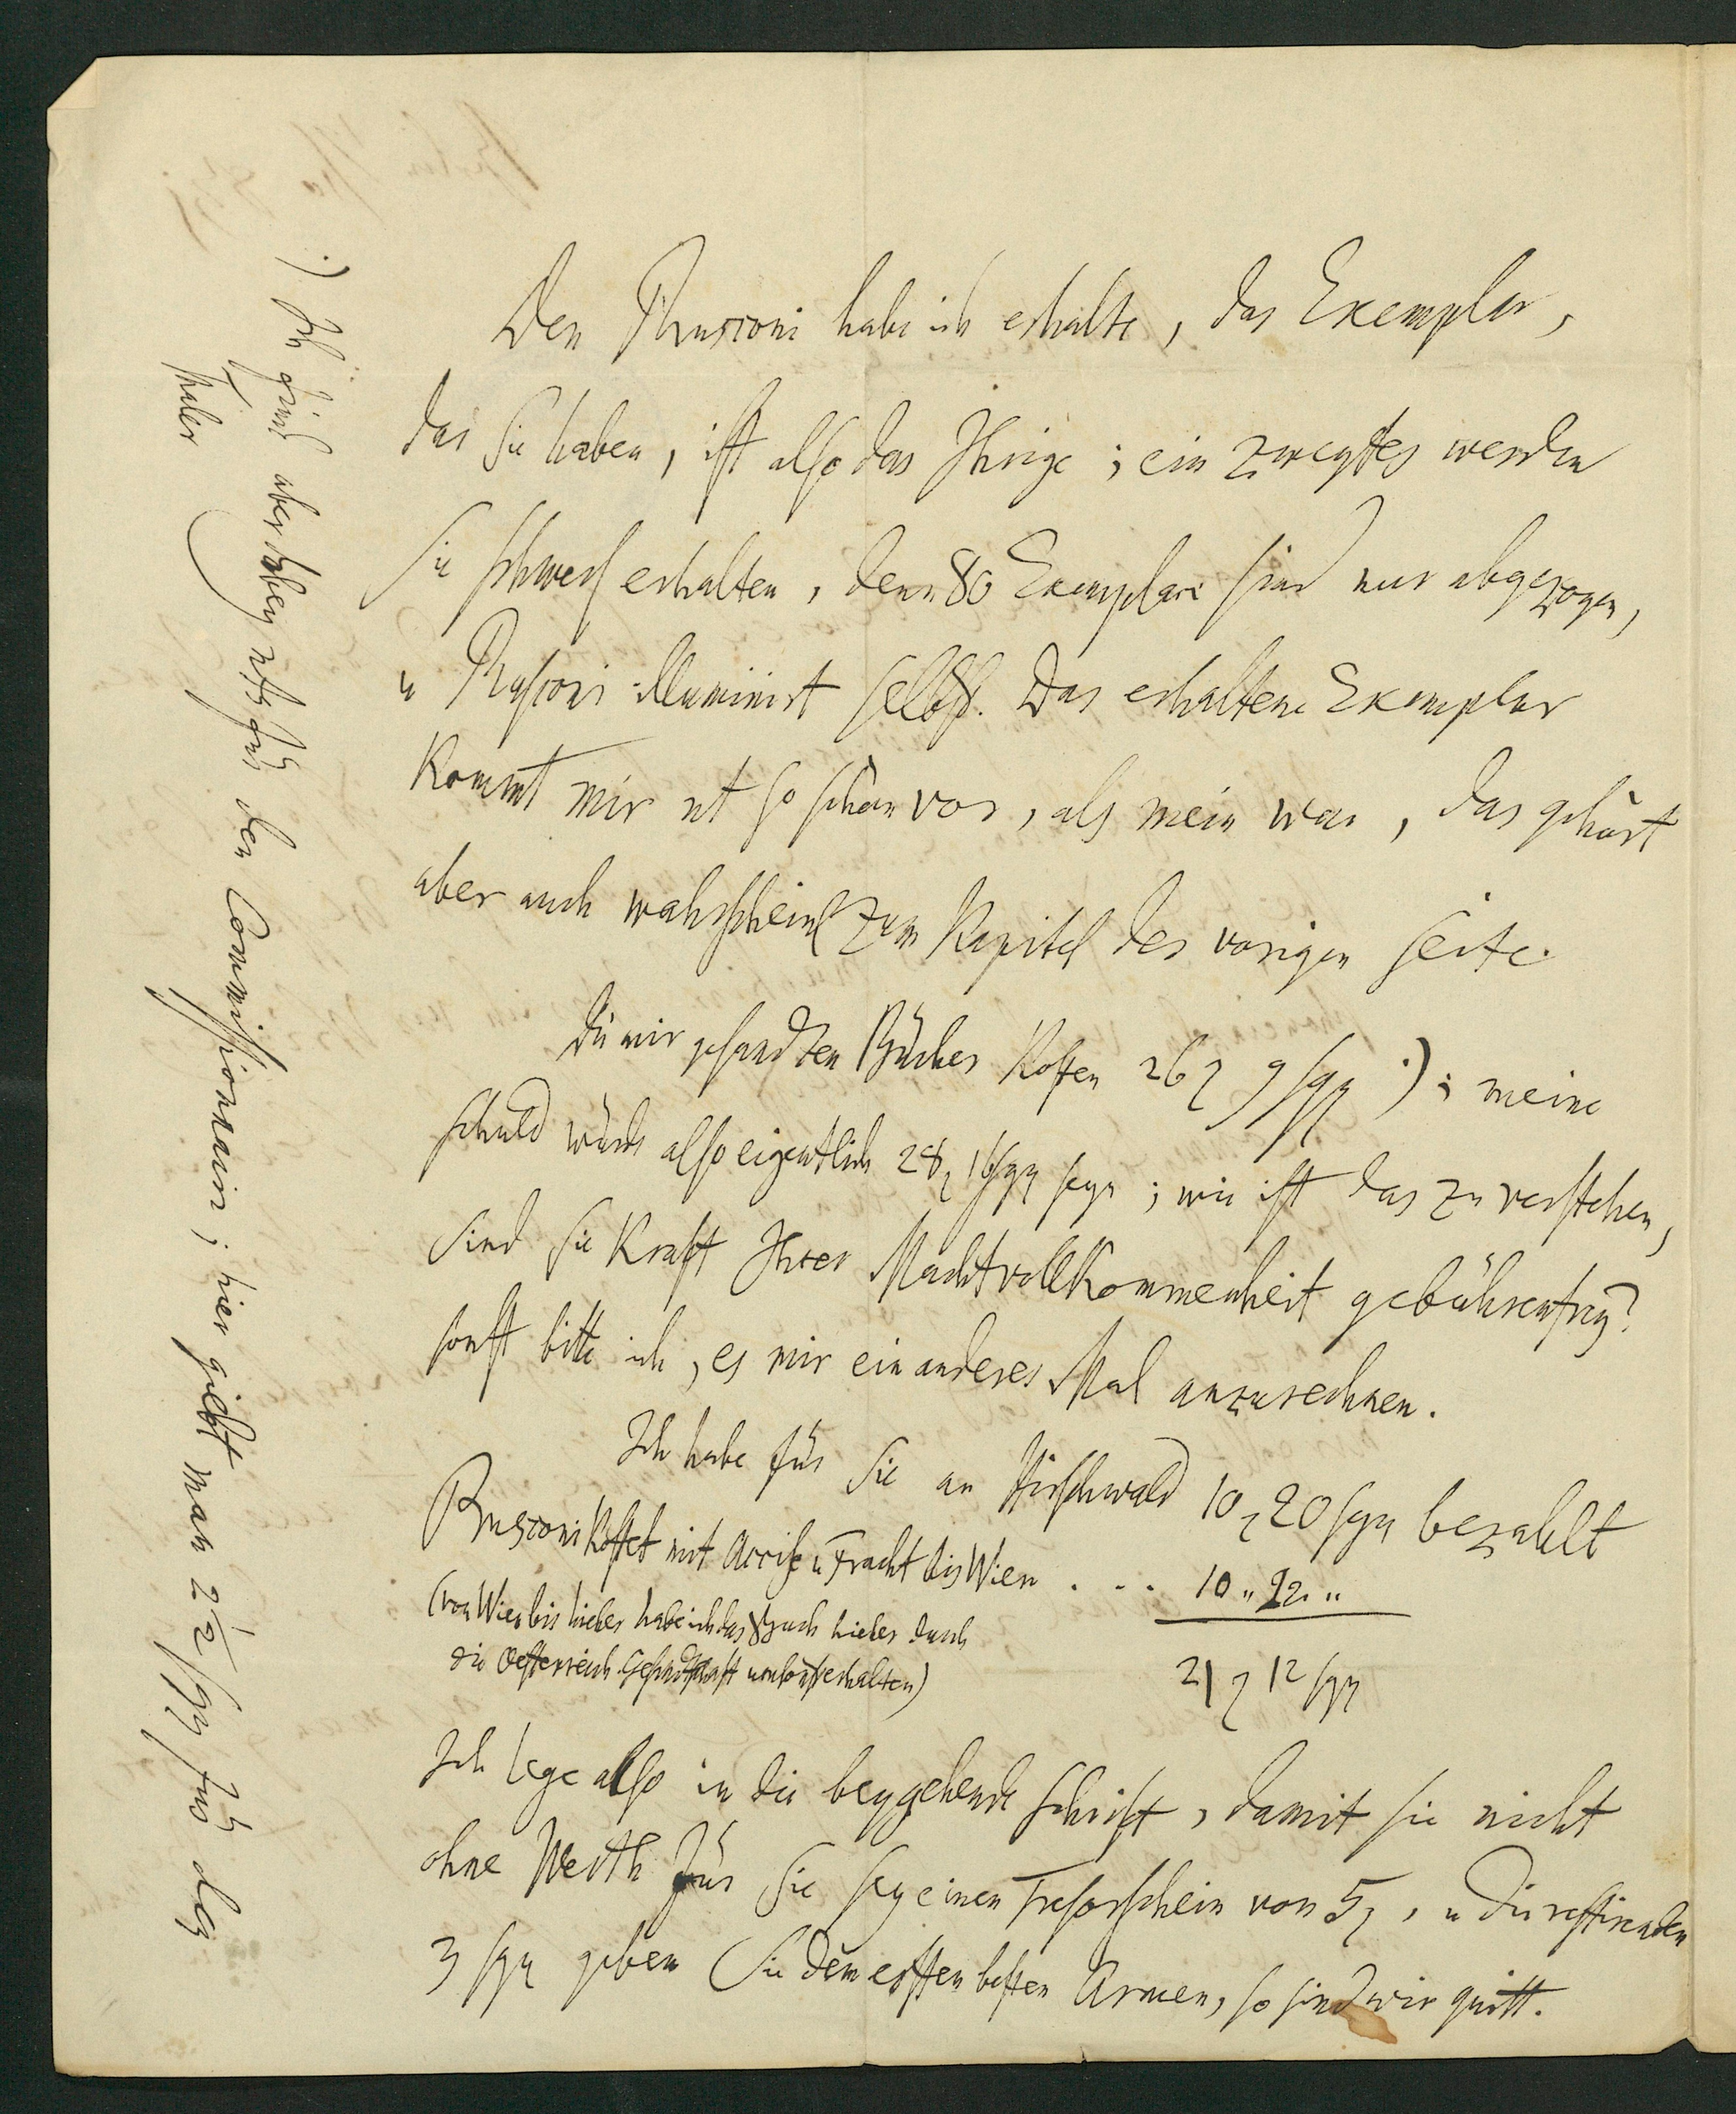 Den Rusconi habe ich erhalte, das Exemplar,
das Sie haben, ist also das Ihrige; ein zweytes werden
Sie schwerl erhalten, denn 80 Exemplare sind nur abgezogen,
u Rusconi illuminirt selbst. Das erhaltene Exemplar
kommt mir nt so schön vor, als mein war, das gehört
aber auch wahrscheinl zum Kapitel der vorigen Seite.
Die mir gesandten Bücher kosten 26 9 sgr ·); meine
Schuld würde also eigentlich 28 16 sgr seyn; wie ist das zu verstehen,
sind Sie Kraft Ihrer Machtvollkommenheit gebührenfrey?
sonst bitte ich, es mir ein anderes Mal anzurechnen.
Ich habe für Sie an Hirschwald 10 20 sgr bezahlt
Rusconi kostet mit Accise u Fracht bis Wien . . . 10 " 22 "
(von Wien bis hieher habe ich das Buch hieher durch
die Oesterreich Gesandtschaft umsonst erhalten)
21 12 sgr
Ich lege also in die beygehende Schrift, damit sie nicht
ohne Werth für Sie sey einen Tresorschein von 5, u die restirenden
3 sgr geben Sie dem ersten besten Armen, so sind wir quitt.
·) Ihr aber den Commissionair; hier giebt man 2½ sgr für den
Thaler